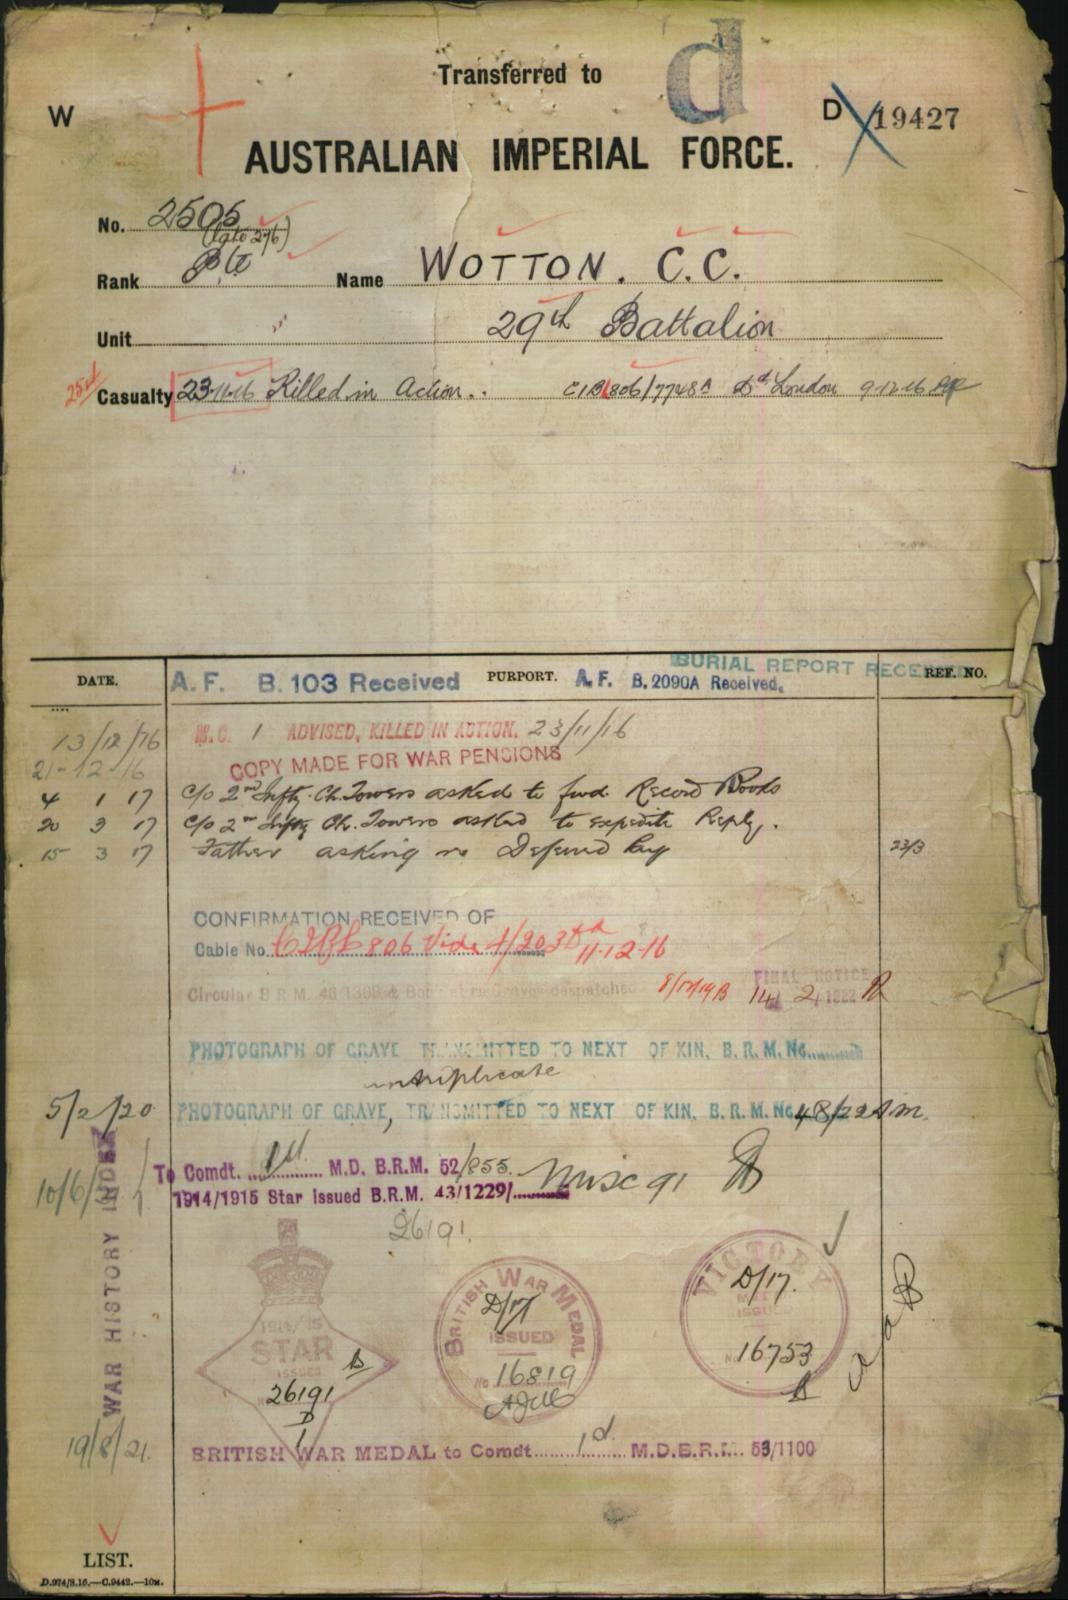 Transferred to d
W D 19427
AUSTRALIAN IMPERIAL FORCE.
No. 2505
(late 276)
Rank Pte Name WOTTON. C.C.
Unit 29th Battalion
Casualty 23.11.16 Killed in Action.. 806/7748A London 9-12-16
BURIAL REPORT RECEIVED
DATE. A.F. B.103 Received PURPORT. A.F. B.2090A Received. REF. NO.
13/12/16 W.C. 1 ADVISED, KILLED IN ACTION. 23/11/16
21-12-16 COPY MADE FOR WAR PENSIONS
4 1 17 C/o 2nd Infty. Ch. Towers asked to fwd. Record Books
20 3 17 C/o 2nd Infty Ch. Towers asked to expedite Reply.
15 3 17 Father asking re Deferred Pay 23/3
CONFIRMATION RECEIVED OF
Cable No. 806 Vide 11-12-16
Circular B.R.M. despatched FINAL NOTICE
PHOTOGRAPH OF GRAVE TRANSMITTED TO NEXT OF KIN. B.R.M. No.
in triplicate
5/2/20 PHOTOGRAPH OF GRAVE, TRANSMITTED TO NEXT OF KIN. B.R.M. No.
To Comdt. 1st M.D. B.R.M. 52/855. Misc 91
10/6/ 1914/1915 Star Issued B.R.M. 43/1229/
26191.
WAR HISTORY INDEX
1914/15
STAR
ISSUED
26191
BRITISH WAR MEDAL
D/17
ISSUED
No 16819
VICTORY
D/17.
ISSUED
No 16753
19/8/21. BRITISH WAR MEDAL to Comdt 1st M.D.B.R.M. 53/1100
LIST.
D.974/8.16.—C.9442.—10M.